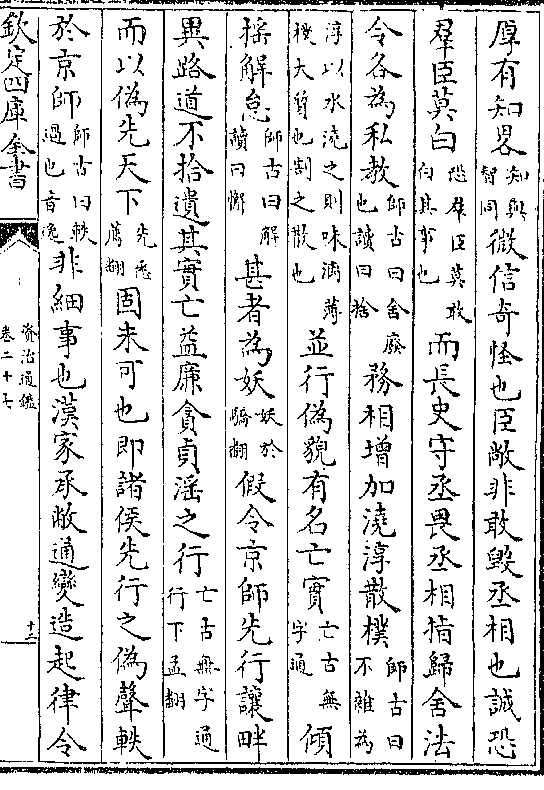 厚有知畧知與智同微信奇怪也臣敞非敢毀丞相也誠恐
羣臣莫白恐羣臣莫敢白其事也而長史守丞畏丞相指歸舍法
令各為私教師古曰舍廢也讀曰捨務相增加澆淳散樸師古曰不雜為
淳以水澆之則味漓薄樸大質也割之散也並行偽貌有名亡實亡古無字通傾
揺解怠師古曰解讀曰懈甚者為妖妖於驕翻假令京師先行讓畔
異路道不拾遺其實亡益廉貪貞淫之行亡古無字通行下孟翻
而以偽先天下先悉薦翻固未可也即諸侯先行之偽聲軼
於京師師古曰軼過也音逸非細事也漢家承敝通變造起律令
欽定四庫全書
資治通鑑
卷二十七
十二